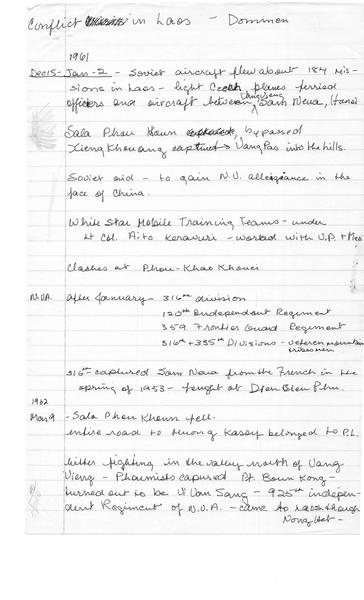 Conflict in Laos - Dommen
1961
Dec 15 - Jan - 2 - Soviet aircraft flew about 184 mis-
sions in Laos - light Czech planes ferried
officers and aircraft between, Vang Vieng, Sam Neua, Hanoi
Sala Phou Khoun, bypassed
Xieng Khouang captured Vang Pao into the hills.
Soviet aid - to gain N.V. allegiance in the
face of China.
White Star Mobile Training Teams - under
Lt Col. Aito Keravuori - worked with V.P. + Meo
Clashes at Phou - Khao Khouei
N.V.A. after January - 316th division
120th Independent Regiment
359 Frontier Guard Regiment
316th + 335th Divisions - veteran mountain
tribesmen
316th - captured Sam Neua from the French in the
spring of 1953 - fought at Dien Bien Phu.
1962
Mar 9 - Sala Phou Khoun fell.
entire road to Muong Kassy belonged to P.L.
bitter fighting in the valley north of Vang
Vieng - Phoumists captured Pt. Boun Kong -
turned out to be Vi Van Sang - 925th indepen-
dent Regiment of N.V.A. - came to Laos through
Nong Het -